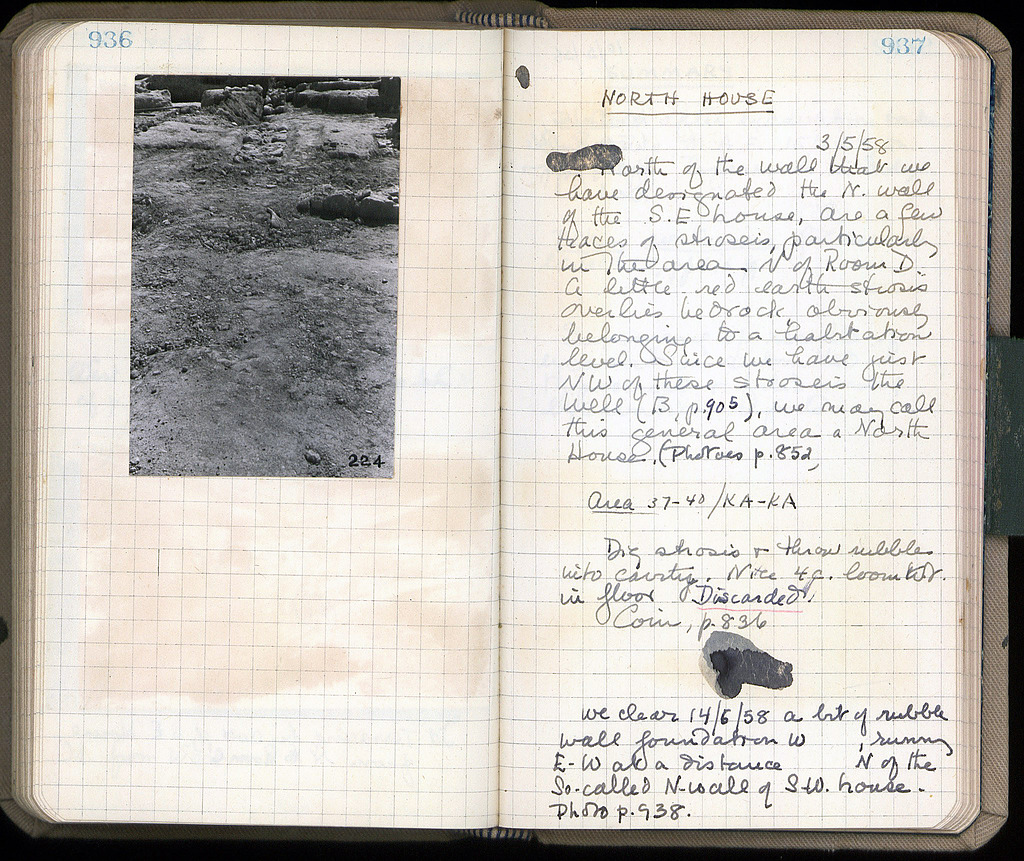 936
224
937
NORTH HOUSE
3/5/58
North of the wall that we
have designated the N. wall
of the S.E house, are a few
traces of stroseis, particularly
in the area N of Room D.
A little red earth strosis
overlies bedrock, obviously
belonging to a habitation
level. Since we have just
NW of these stroseis the
Well (B, p.905), we may call
this general area a North
House. (Photoes p.852,
Area 37-40/KA-KA
Dig strosis + throw rubble
into cavity. Nice 4c. loomwt.
in floor Discarded.
Coin, p.836
We clear 14/6/58 a bit of rubble
wall foundation W , running
E-W at a distance N of the
So-called N-wall of S.W. house.
Photo p.938.